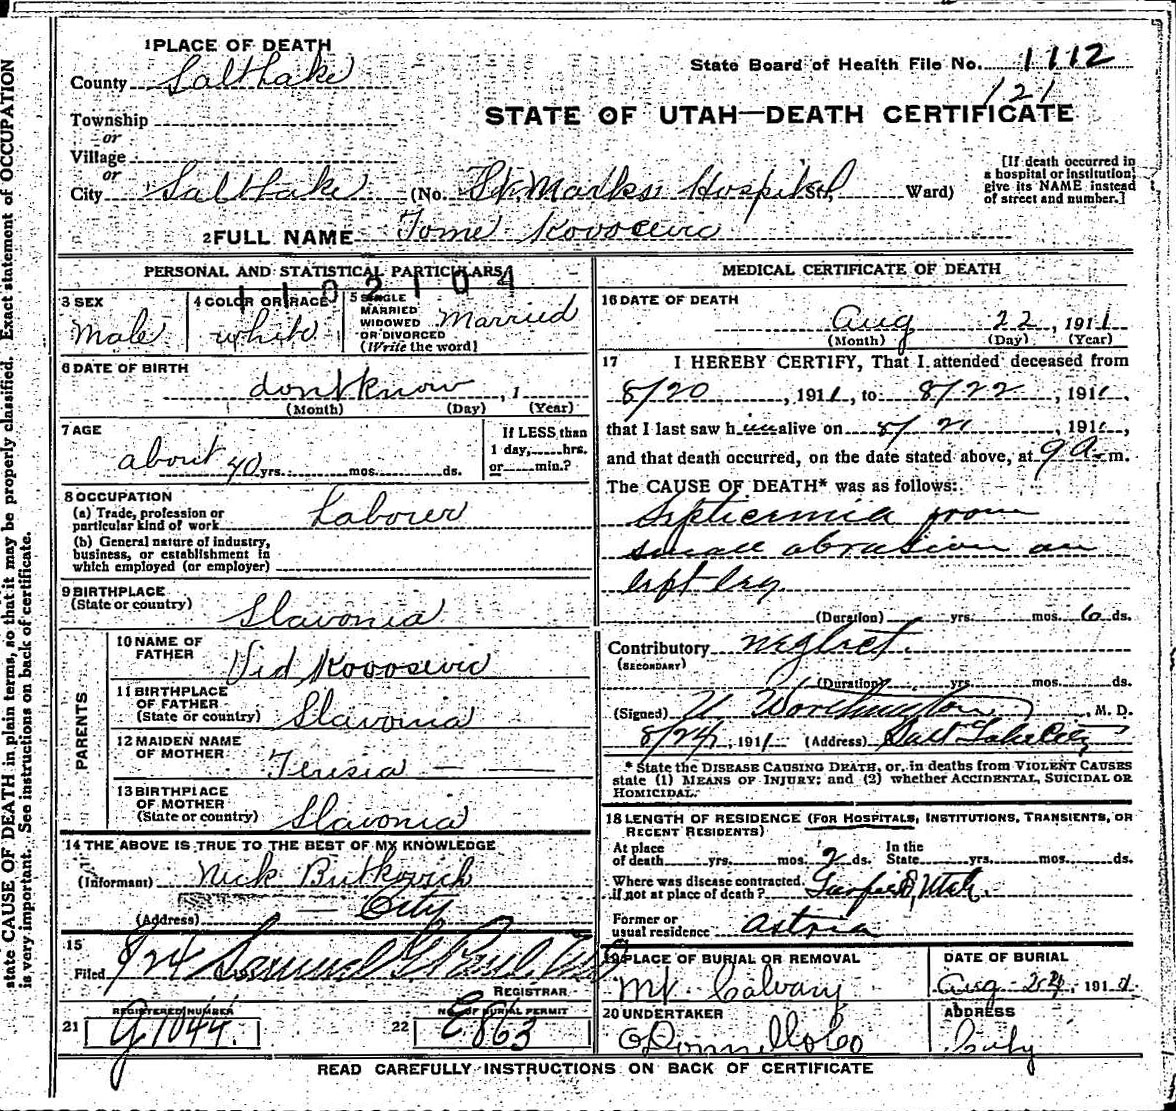 state CAUSE OF DEATH in plain terms, so that it may be properly classified. Exact statement of OCCUPATION
is very important. See instructions on back of certificate.
1 PLACE OF DEATH
County Salt Lake
State Board of Health File No. 1112
121
STATE OF UTAH—DEATH CERTIFICATE
Township
or
Village
or
City Salt Lake (No. St. Marks Hospital St., Ward)
[If death occurred in
a hospital or institution,
give its NAME instead
of street and number.]
2 FULL NAME Tome Kovocevic
PERSONAL AND STATISTICAL PARTICULARS
3 SEX
Male
4 COLOR OR RACE
white
5 SINGLE
MARRIED
WIDOWED
OR DIVORCED
(Write the word)
Married
6 DATE OF BIRTH
dont know , 1
(Month) (Day) (Year)
7 AGE
about 40 yrs. mos. ds.
If LESS than
1 day, hrs.
or min.?
8 OCCUPATION
(a) Trade, profession or
particular kind of work Laborer
(b) General nature of industry,
business, or establishment in
which employed (or employer)
9 BIRTHPLACE
(State or country) Slavonia
PARENTS
10 NAME OF
FATHER Vid Kovosevic
11 BIRTHPLACE
OF FATHER
(State or country) Slavonia
12 MAIDEN NAME
OF MOTHER Teresia
13 BIRTHPLACE
OF MOTHER
(State or country) Slavonia
14 THE ABOVE IS TRUE TO THE BEST OF MY KNOWLEDGE
(Informant) Nick Butkovich
(Address) City
15
Filed 8/24 191 Samuel G. Paul
REGISTRAR
REGISTERED NUMBER
21 G 1044.
NO. OF BURIAL PERMIT
22 E863
MEDICAL CERTIFICATE OF DEATH
16 DATE OF DEATH
Aug 22, 1911
(Month) (Day) (Year)
17 I HEREBY CERTIFY, That I attended deceased from
8/20, 1911, to 8/22, 1911,
that I last saw him alive on 8/21, 1911,
and that death occurred, on the date stated above, at 9 A. m.
The CAUSE OF DEATH* was as follows:
Septicemia from
small abrasion on
left leg
(Duration) yrs. mos. 6 ds.
Contributory neglect.
(SECONDARY)
(Duration) yrs. mos. ds.
(Signed) Worthington, M. D.
8/24, 1911 (Address) Salt Lake City
* State the DISEASE CAUSING DEATH, or, in deaths from VIOLENT CAUSES
state (1) MEANS OF INJURY; and (2) whether ACCIDENTAL, SUICIDAL OR
HOMICIDAL.
18 LENGTH OF RESIDENCE (FOR HOSPITALS, INSTITUTIONS, TRANSIENTS, OR
RECENT RESIDENTS)
At place In the
of death yrs. mos. 2 ds. State yrs. mos. ds.
Where was disease contracted,
if not at place of death? Garfield, Utah.
Former or
usual residence Astria
19 PLACE OF BURIAL OR REMOVAL
Mt Calvary
DATE OF BURIAL
Aug 24, 1911
20 UNDERTAKER
O'Donnell & Co
ADDRESS
City
READ CAREFULLY INSTRUCTIONS ON BACK OF CERTIFICATE